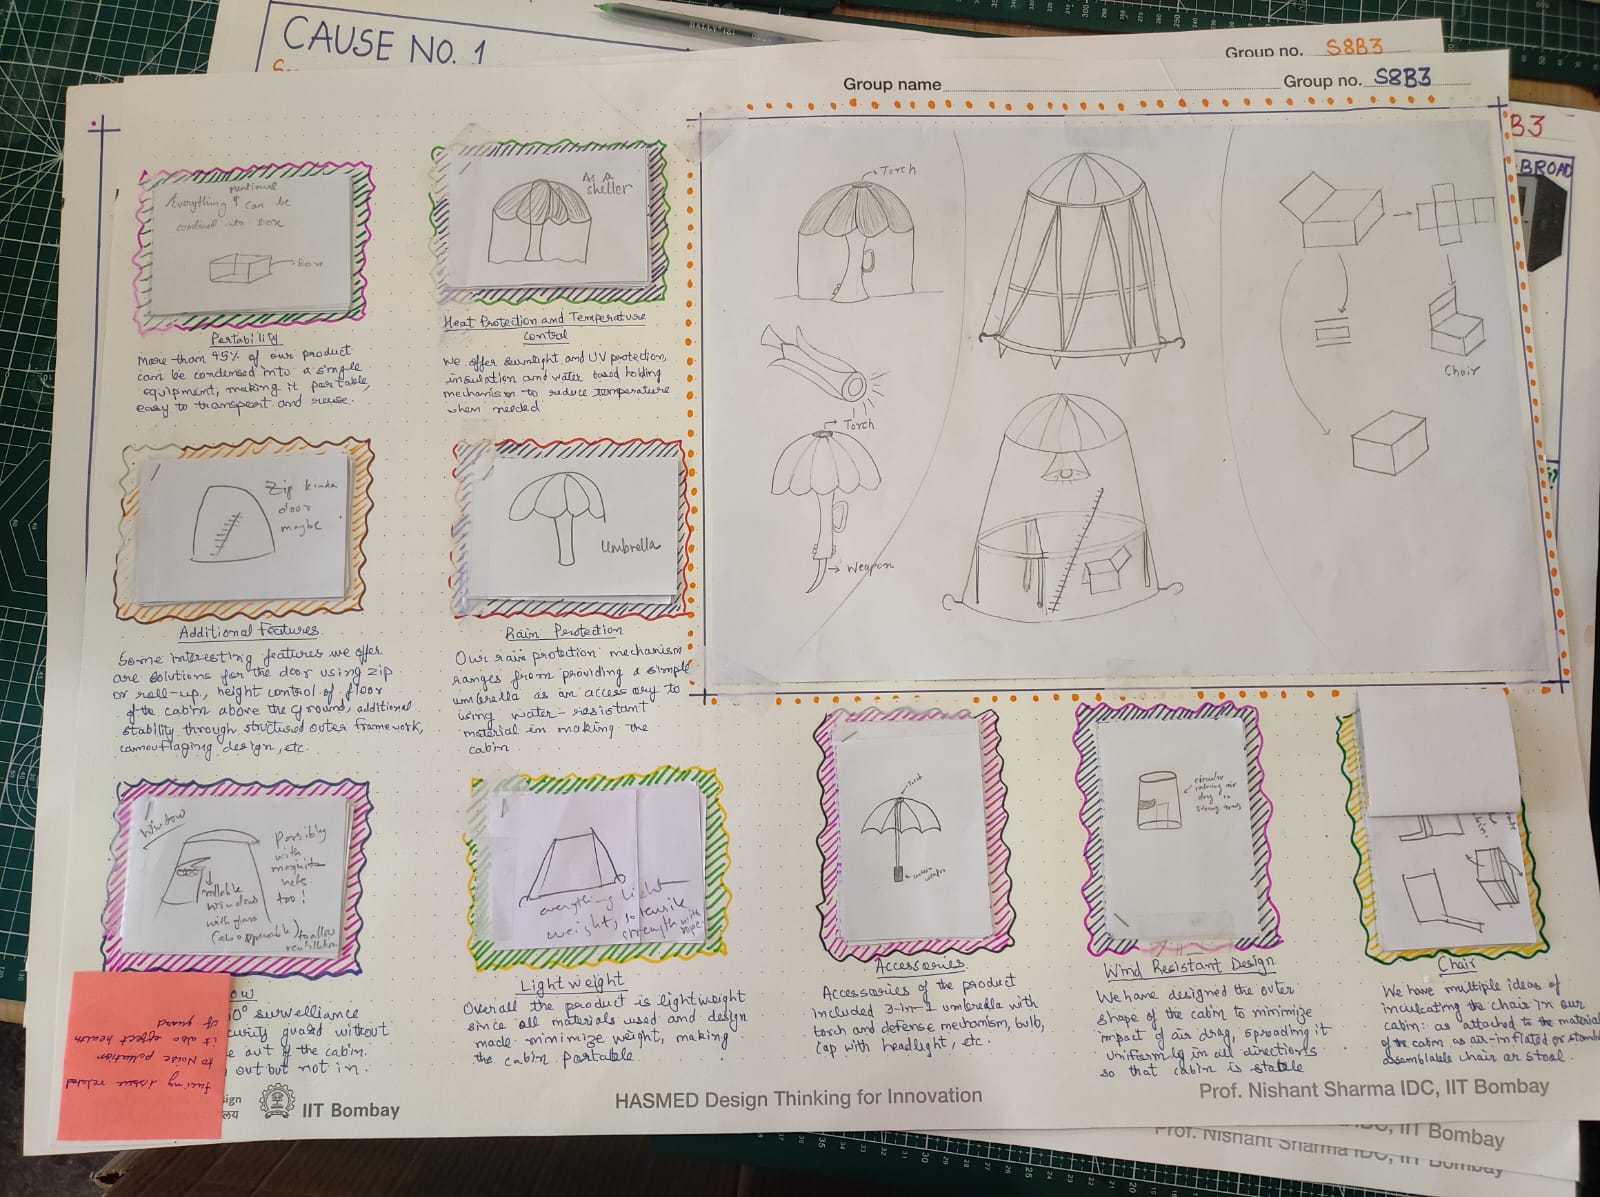 CAUSE NO. 1
Group no. S8B3
Group name
Group no. S8B3
B3
BROAD
mentioned
Everything can be
condensed into box
Box
Portability
More than 95% of our product
can be condensed into a single
equipment, making it portable,
easy to transport and reuse.
As a
shelter
Heat Protection and Temperature
Control
We offer sunlight and UV protection,
insulation and water based holding
mechanism to reduce temperature
when needed
Zip kinda
door
maybe
Additional Features
Some interesting features we offer
are solutions for the door using zip
or roll-up, height control of floor
of the cabin above the ground, additional
stability through structured outer framework,
camouflaging design, etc.
Umbrella
Rain Protection
Our rain protection mechanism
ranges from providing a simple
umbrella as an accessory to
using water-resistant
material in making the
cabin.
Torch
Torch
Weapon
Chair
Window
Possibly
with
mosquito
nets
too!
rollable
windows
with glass
(also openable) to allow
ventilation
ow
0° surveillance
curity guard without
e out of the cabin.
out but not in.
facing issue related
to Noise pollution
it also effect health
of guard
everything light
weight, so tensile
strength with
ropes
Lightweight
Overall the product is lightweight
since all materials used and design
made minimize weight, making
the cabin portable.
Torch
weapon
Accessories
Accessories of the product
included 3-in-1 umbrella with
torch and defense mechanism, bulb,
cap with headlight, etc.
circular
reducing air
drag in
strong
Wind Resistant Design
We have designed the outer
shape of the cabin to minimize
impact of air drag, spreading it
uniformly in all directions
so that cabin is stable
Chair
We have multiple ideas of
inculcating the chair in our
cabin: as attached to the material
of the cabin as air-inflated or
assemblable chair or stool.
sign
लय
IIT Bombay
HASMED Design Thinking for Innovation
Prof. Nishant Sharma IDC, IIT Bombay
IIT Bombay
Prof. Nishant Sharma IDC, IIT Bombay